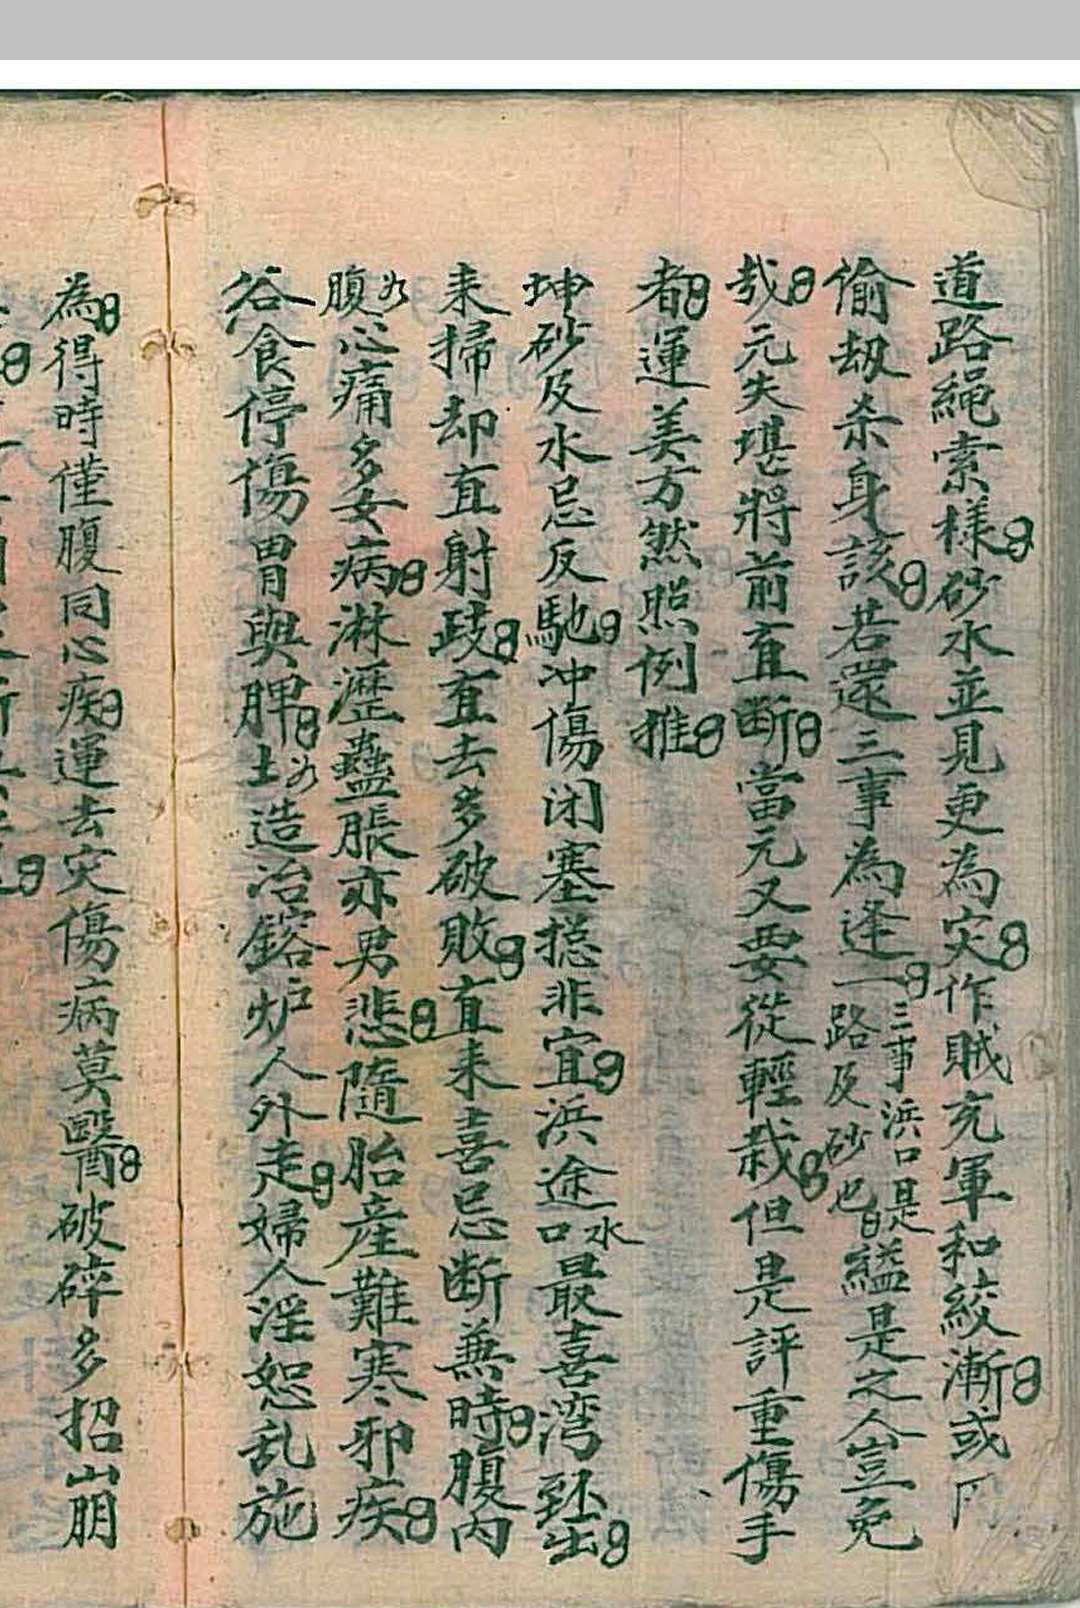 道路繩索樣砂水並見更為灾作賊充軍和絞漸或
偷刼杀身該若還三事為逢一三事浜口是路及砂也縊是之人豈免
哉元失堪將前直断當元又要從輕栽但是評重傷手
者運美方然照例推
坤砂及水忌反馳冲傷闭塞摠非宜浜途水口最喜湾
耒掃却直射歧直去多破敗直耒喜忌断無時腹内
腹心痛多女病淋瀝蠱脹亦男悲隨胎産難寒邪疾
谷食停傷胃與脾土造冶鎔炉人外走婦人淫恕乱施
為得時僅腹同心痴運去灾傷病莫醫破碎多招山朋